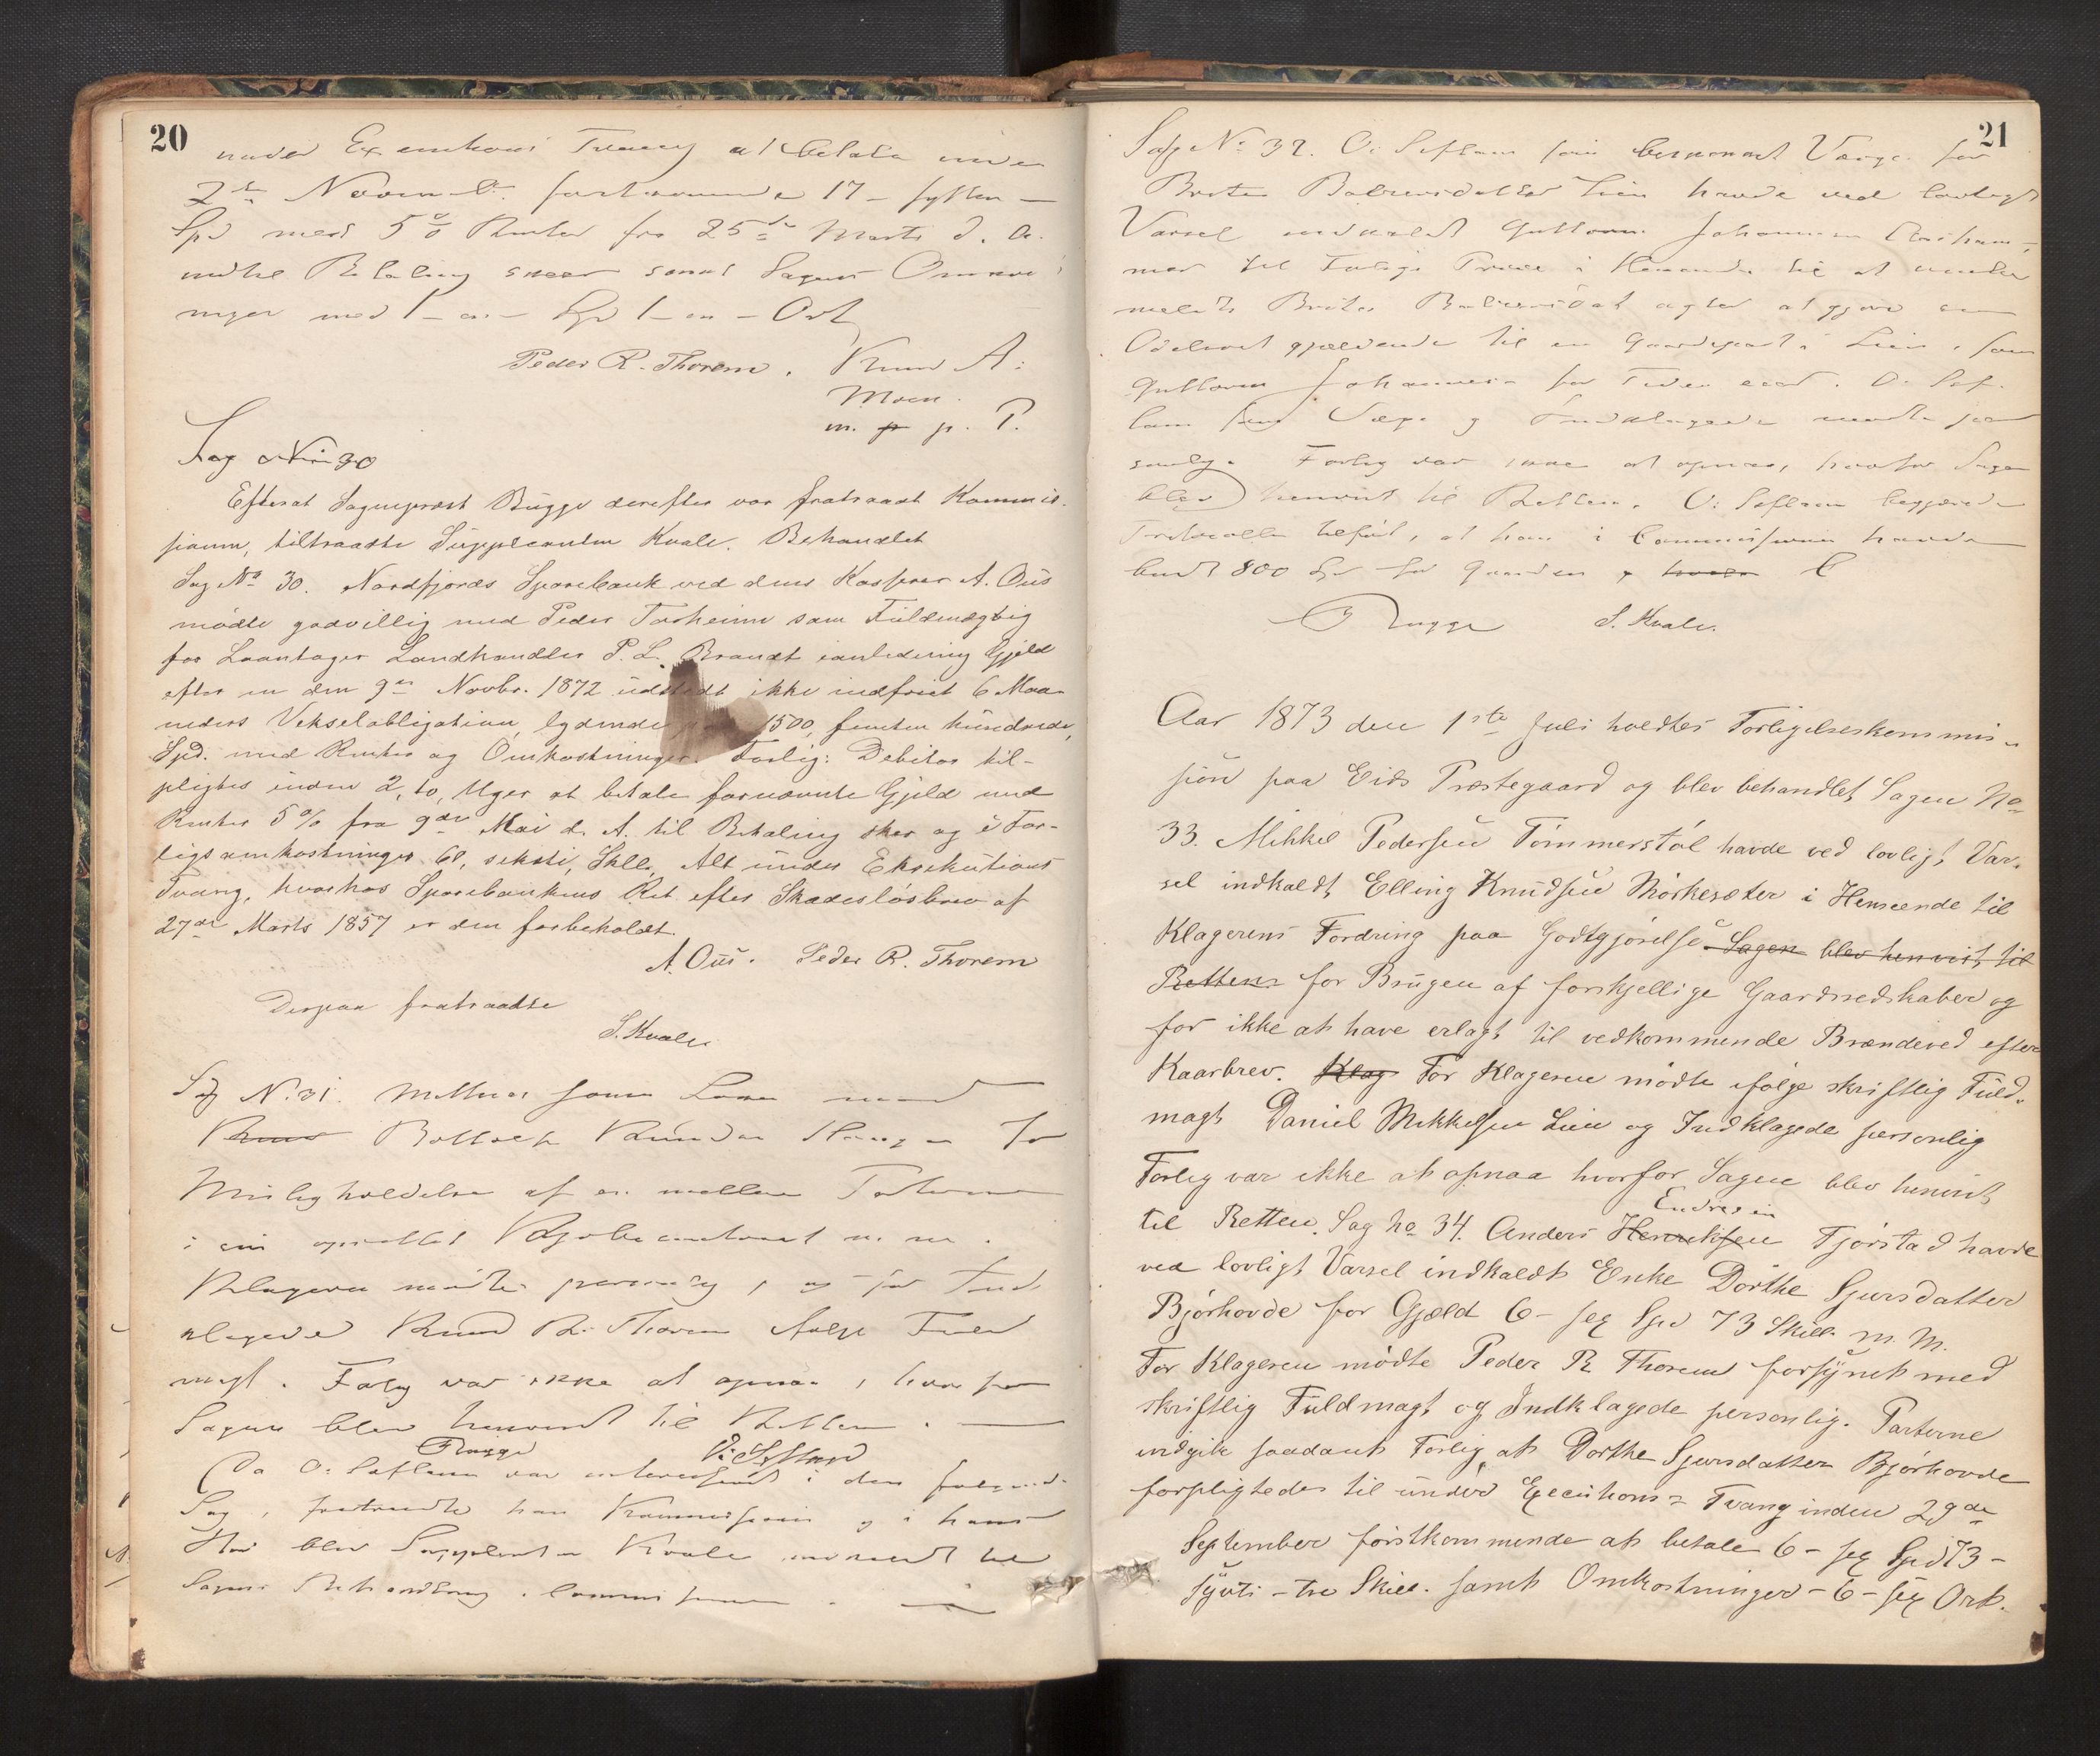 20
under Executions Tvang at betale inden
2de Novemb. førstkommende 17 - sytten -
Spd med 5% Renter fra 25de Marts d. A.
indtil Betaling skeer samt Sagens Omkost
ninger med 1 - en - Spd 1 - en - Ort
Peder R. Thorem. Knud A:
Moen.
m. p. P.
Sag No 30
Efterat Sogneprest Bugge derefter var fratraadt Kommis-
sionen, tiltraadte Suppleanten Kvale. Behandlet
Sag No 30. Nordfjords Sparebank ved dens Kasserer A. Ous
mødte godvillig med Peder Torheim som Fuldmægtig
for Laantager Landhandler P. L. Brandt ianledning Gjeld
efter en den 9de Novbr. 1872 udstedt ikke indfriet 6 Maa-
neders Vekselobligation, lydende 1500, femten hundrede,
Spd. med Renter og Omkostninger. Forlig: Debitor til-
pligtes inden 2, to, Uger at betale fornævnte Gjeld med
Renter 5% fra 9de Mai d. A. til Betaling sker og i For-
ligsomkostninger 60, seksti, Skll. Alt under Eksekutions
Tvang, hvorhos Sparebankens Ret efter Skadesløsbrev af
27de Marts 1857 er den forbeholdt.
A. Ous. Peder R. Thorem
Derpaa fratraadte
S. Kvale.
Sag N: 31. som
Knud Knudsen Haugen for
Misligholdelse af en mellem Parterne
oprettet m. m.
Klageren mødte personlig, og for Ind
klagede Knud R. Thorem ifølge Fuld
magt. Forlig var ikke at opnaa, hvorfor
Sagen blev henvist til Retten.
Bugge O: Seftland
Da O: Seftland var interesseret i den følgende
Sag, fratraadte han Kommissionen og i hans
Sted blev Suppleanten Kvale
Sagens Behandling. Commissionen.
21
Sag No 32. O: Seftland som Værge for
Brite Lien havde ved lovligt
Varsel indkaldt Guttorm Johannesen
mer til Forligs Prøve i Henseende til at
meldte Brite agter at gjøre sin
Odelsret gjældende til en Gaardspart i Lien, som
Guttorm Johannesen for Tiden eier. O: Sef-
land som Værge og Indklagede mødte per
sonlig. Forlig var ikke at opnaa, hvorfor Sagen
blev henvist til Retten. O: Seftland begjærede
Protocollen tilført, at han i Commissionen havde
budt 800 Spd for Gaarden
Bugge S. Kvale.
Aar 1873 den 1ste Juli holdtes Forligelseskommis-
sion paa Eids Præstegaard og blev behandlet Sagen No
33. Mikkel Pedersen Tømmerstøl havde ved lovligt Var-
sel indkaldt Elling Knudsen Mørkesæter i Henseende til
Klagerens Fordring paa Godtgjørelse Sagen blev henvist til
Retten for Brugen af forskjellige Gaardsredskaber og
for ikke at have erlagt til vedkommende Brændeved efter
Kaarbrev. Klag For Klageren mødte ifølge skriftlig Fuld-
magt Daniel Mikkelsen Lien og Indklagede personlig
Forlig var ikke at opnaa hvorfor Sagen blev henvist
til Retten. Sag No 34. Anders Henriksen Endresen Fjørstad havde
ved lovligt Varsel indkaldt Enke Dorthe Sjursdatter
Bjørhovde for Gjæld 6 - sex Spd 73 Skill. m. M.
For Klageren mødte Peder R Thorem forsynet med
skriftlig Fuldmagt og Indklagede personlig. Parterne
indgik saadant Forlig, at Dorthe Sjursdatter Bjørhovde
forpligtedes til under Executions Tvang inden 29de
September førstkommende at betale 6 - sex Spd 73 -
sytti - tre Skill. samt Omkostninger - 6 - sex Ort.